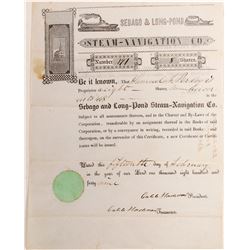 SEBAGO & LONG-POND
STEAM-NAVIGATION CO.
Number 141 8 Shares
Be it known, That
Proprietor of eight Shares, Numbered
in the
Sebago and Long-Pond Steam-Navigation Co.
Subject to all assessments thereon, and to the Charter and By-Laws of the
Corporation, transferable by an assignment thereof in the Books of said
Corporation, or by a conveyance in writing, recorded in said Books; and
thereupon, on the surrender of this Certificate, a new Certificate or Certificates
will be issued.
Dated this fifteenth day of February
in the year of our Lord one thousand eight hundred and forty
President.
Treasurer.